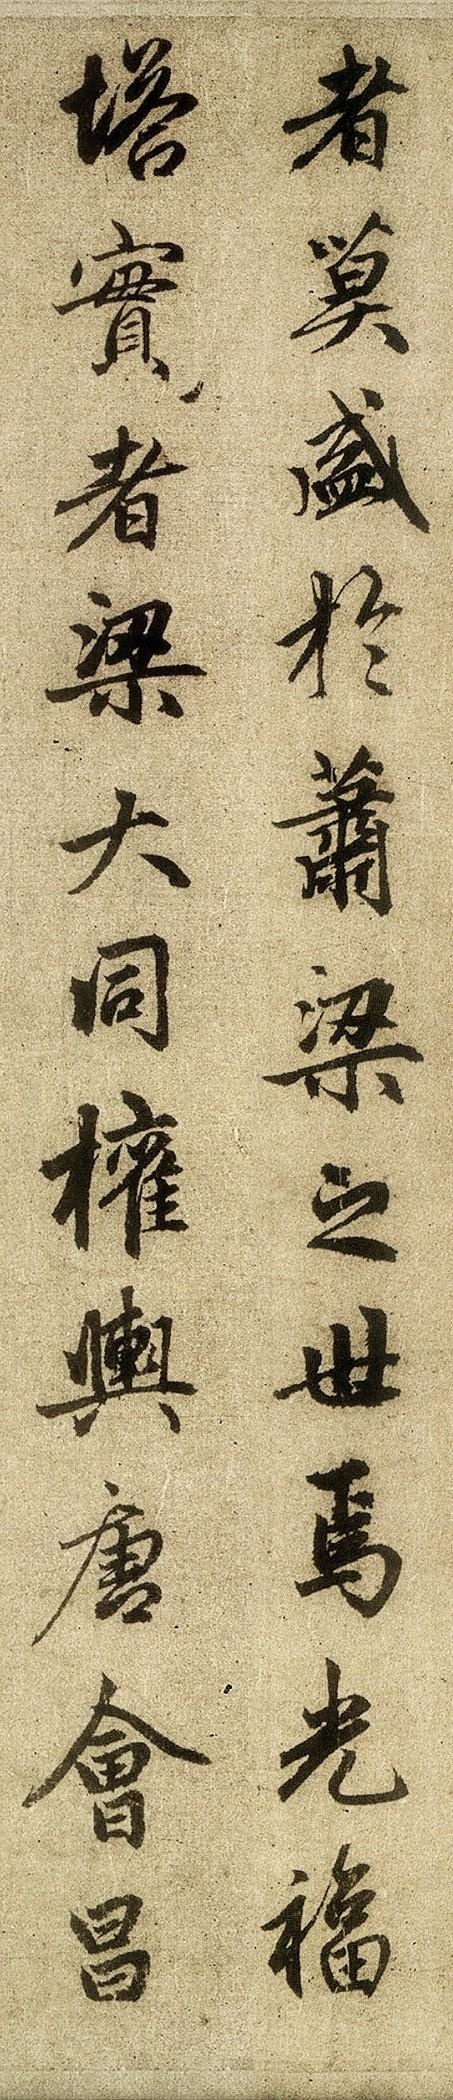 者莫盛於蕭梁之世焉光福
塔實者梁大同權輿唐會昌